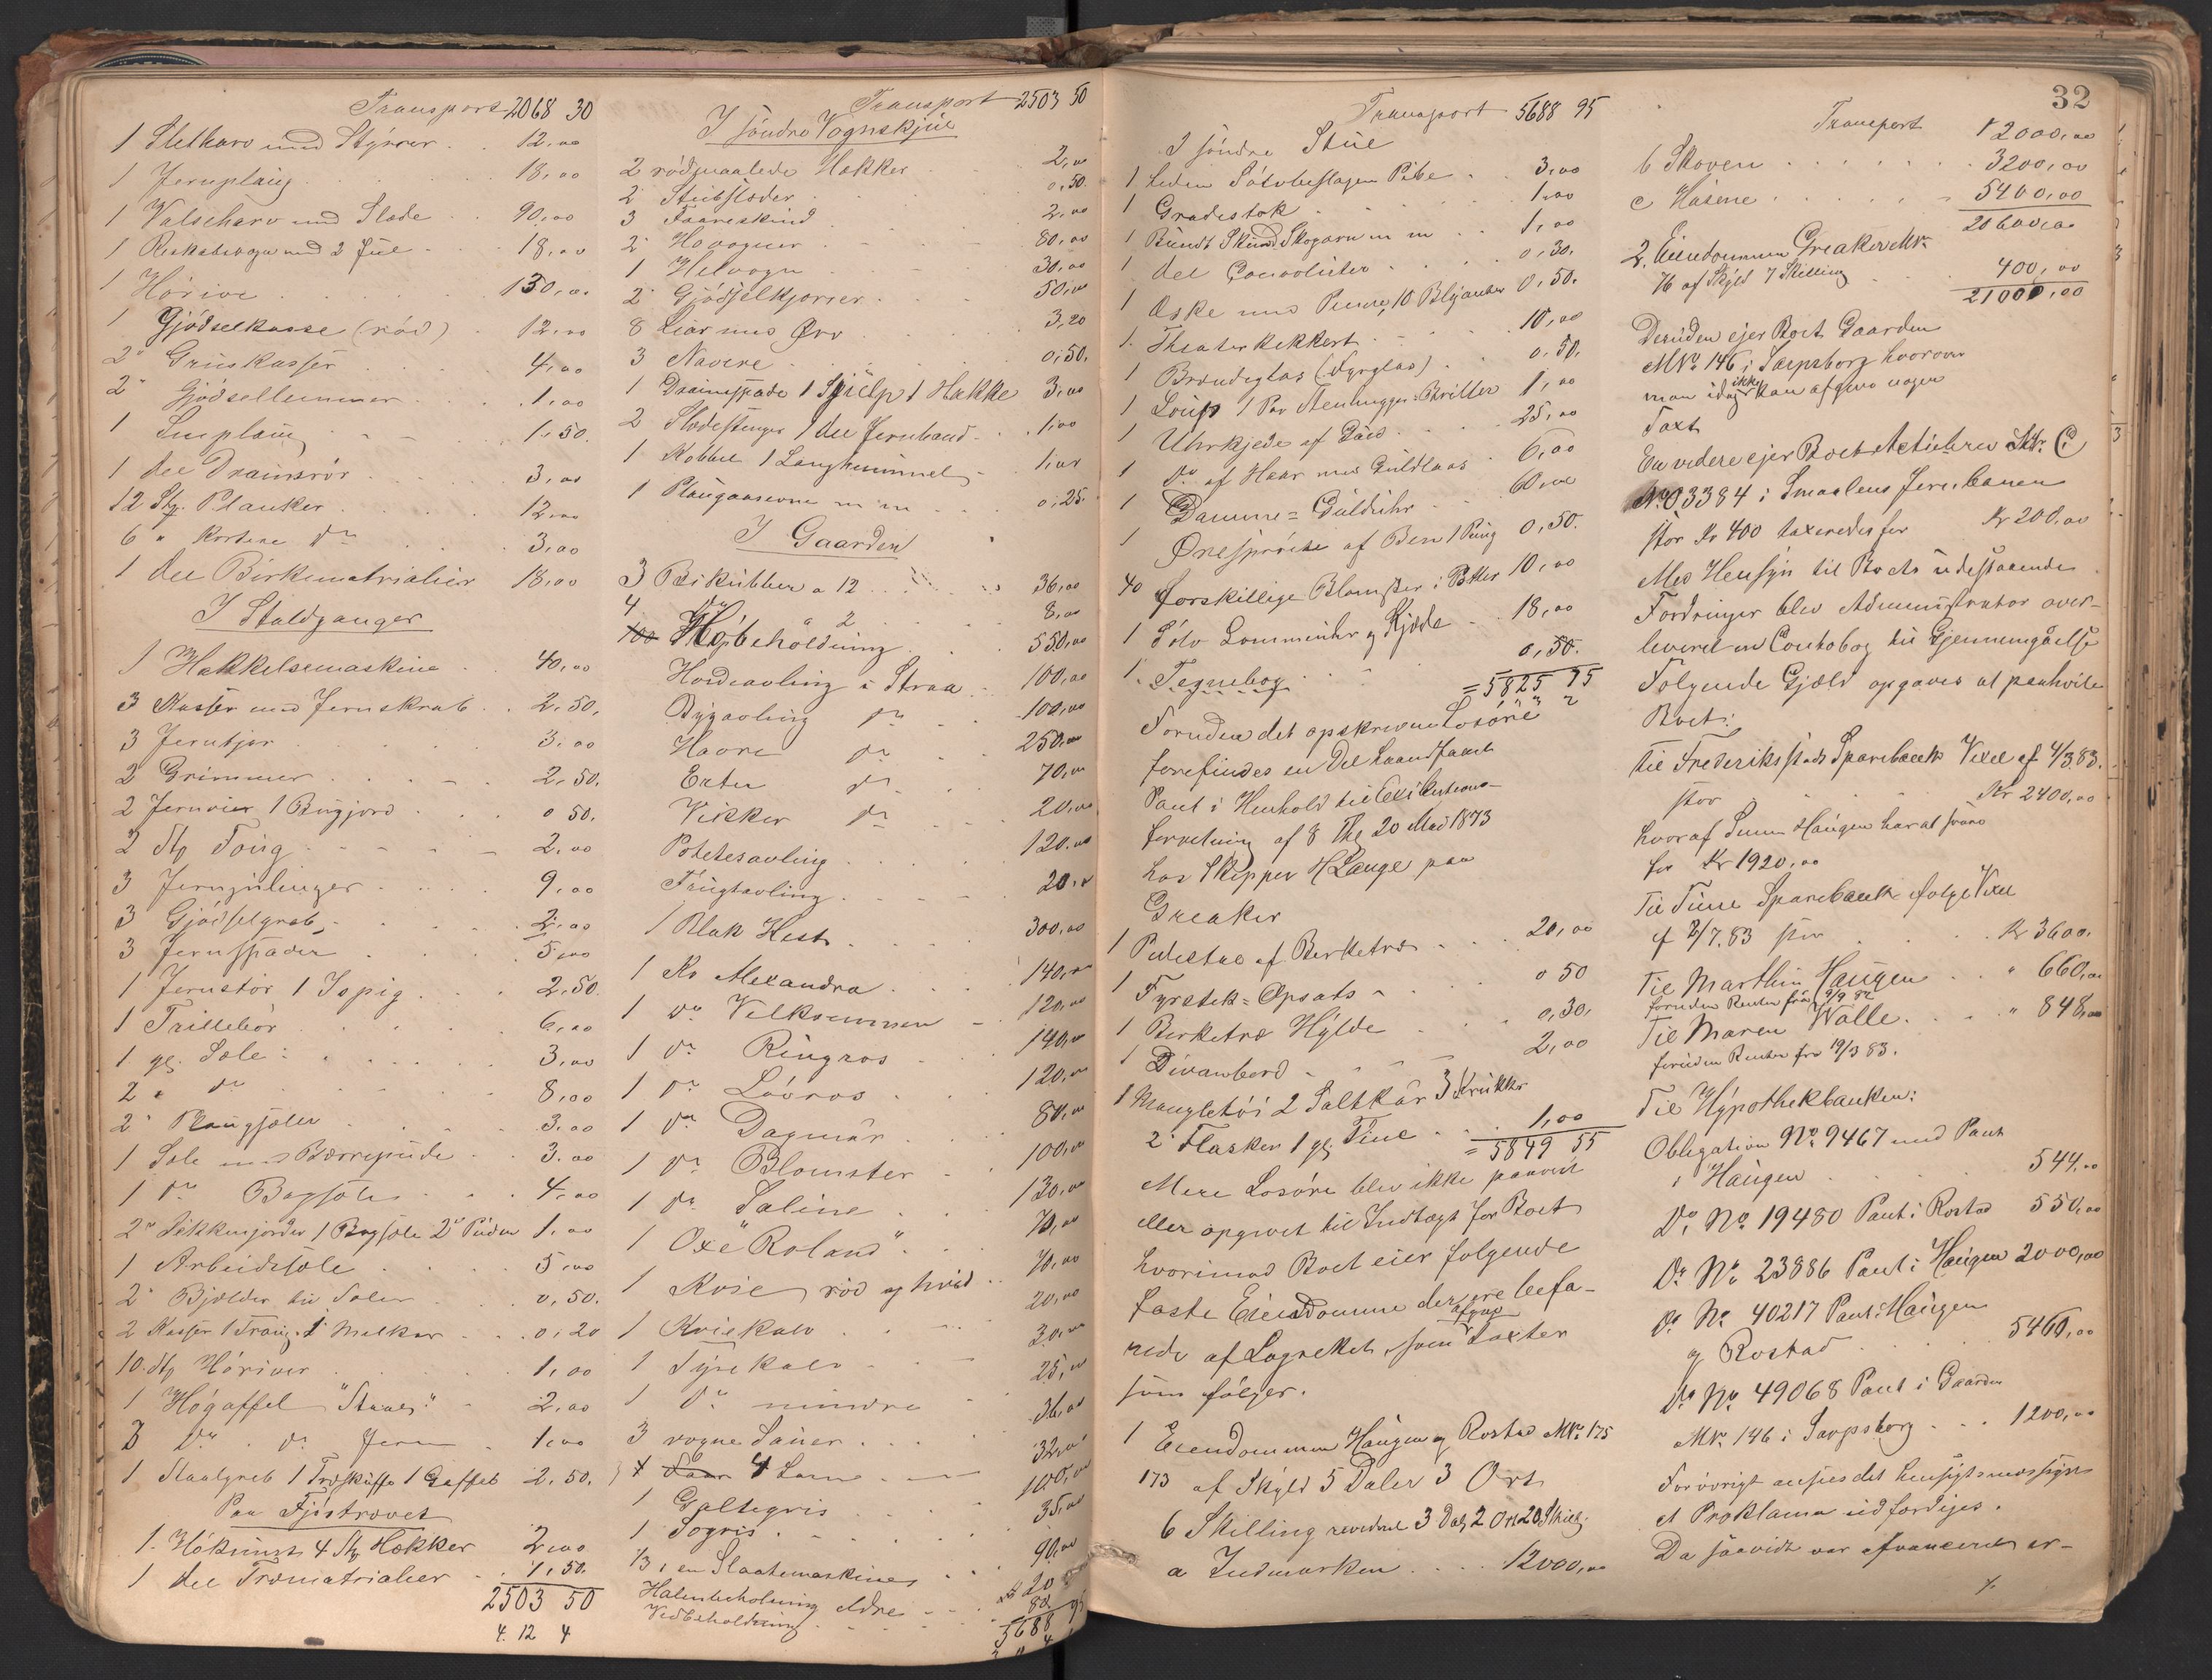 Transport 2068 30
1 Sletharv med Styrrer 12,00
1 Jernploug 18,00
1 Valseharv med Slæde 90,00
1 med 2 Jul 18,00
1 Hörive 130,00
1 Gjödselkasse (röd) 12,00
2" Gruskasser 4,00
2" Gjödsellemmer 1,00
1 Sneploug 1,50.
1 del Drainsrör 3,00
12 Stk. Planker 12,00
6 " kortere do 3,00
1 del Birkematrialier 18,00
I Staldganger
1 Hakkelsemaskine 40,00
3 Kasser med Jernskrab 2,50,
3 Jerntjor 3,00
2 Grimmer 2,50.
2 1 Bugjord 0 50.
2 Stk Toug 2,00
3 9,00
3 Gjödselgreb 2,00
3 Jernspader 5,00
1 Jernstör 1 Ispig 2,50
1 Trillebör 6,00
1 gl. Sele 3,00
2 " do 8,00
2" Plougseler 3,00
1 Sele med Bærrepude 3.00
1 do Bagsele 4,00
2" 1 Bagsele 2" Puder 1,00
1 Arbeidssele 5,00
2" Bjelder til Seler 0,50.
2 Kasser 1 Traug 1 0,20
10 Stk Höriver 1,00
1 Högaffel "Staal" 2,00
3 do do Jern 1,00
1 Staalgreb 1 Træskuffe 1 Gaffel 2,50.
Paa Fjöstrævet
1 4 Stk Hækker 2,00
1 del Træmatrialier 1,50.
2503 50
4. 12 4
Transport 2503 50
I söndre Vognskjul
2 rödmaalede Hækker 2,00
2" Stubslæder 0,50.
3 Faareskind 2,00
2" Hövogner 80,00
1 Helvogn 30,00
2" Gjödselkjærrer 50,00
8 Liar med Orv 3,20
3 Navere 0,50.
1 Drainspade 1 1 Hakke 3,00
2 Slædestenger 1 del Jernbaand 1,00
1 Kobbel 1 Langhummel 1,00
1 m m 0,25.
I Gaarden
3 Bikubber a 12 36,00
4 do a 2 8,00
Höbeholdning 550,00
Hvedeavling i Straa 100,00
Bygavling do 100,00
Havre do 250,00
Erter do 70,00
Vikker do 20,00
Potetesavling 120.00
Frugtavling 20,00
1 Blak Hest 300,00
1 Ko Alexandra 140,00
1 do Velkommen 120,00
1 do Ringros 140,00
1 do Lövros 120,00
1 do Dagmar 80,00
1 do Blomster 100,00
1 do Saline 130,00
1 Oxe "Roland" 70,00
1 Kvie röd og hvid 70,00
1 Kviekalv 20,00
1 Tyrekalv 30,00
1 do mindre 25,00
3 vogne Sauer 36,00
4 Lam 32,00
1 Galtegris 100,00
1 Sogris 35,00
1/3 i en Slaatemaskine 90,00
Halmbeholdning eldre 20
Vedbeholdning 80
5688 95
Transport 5688 95
I söndre Stue
1 liden Sölvbeslagen Pibe 3,00
1 Gradestok 1,00
1 Bundt Skind Skogarn m m 1,00
1 del Convoluter 0,30.
1 Æske med Penne, 10 Blyanter 0,50.
1 Theaterkikkert 10,00
1 Brændeglas (Fyrglas) 0,50.
1 Loup 1 Par Stenhugger-Briller 1,00
1 Uhrkjede af Guld 25,00
1 do af Haar med Guldlaas 6,00
1 Damme=Gulduhr 60,00
1 Öresprøite af Ben 1 Pung 0,50.
40 forskillige Blomster i Potter 10,00
1 Sölv Lommeuhr og Kjæde 18,00
1 Tegnebog 0,50.
=5825 75
Foruden det opskrevne Losöre
forefindes en Del haandfaaet
Pant i Henhold til Executions-
forretning af 8 Thg 20 Mai 1873
hos Skipper H Lange paa
Greaker
1 Pidestal af Berketræ 20,00
1 Fyrstik=Opsats 0 50
1 Berketræ Hylde 0,30,
1 Divanbord 2,00
1 Mangletöi 2 Saltkar 3 Krukker
2" Flasker 1 gl Tine 1,00
=5849 55
Mere Losöre blev ikke paavist
eller opgivet til Indtægt for Boet
hvorimod Boet eier folgende
faste Eiendomme der ere befa-
rede af Lagrettet, som afgav Taxter
som fölger.
1 Eiendommen Haugen og Rostad MNr. 175
173 af Skyld 5 Daler 3 Ort
6 Skilling revideret 3 Dal 2 Ort 20 Skill.
a Indmarken 12000,00
32
Transport 12000,00
b Skoven 3200,00
c Husene 5400,00
20600,00
2. Eiendommen Greaker MNr.
76 af Skyld 7 Skilling 400,00
21000,00
Desuden ejer Boet Gaarden
MNo 146 i Sarpsborg hvorover
man idag ikke kan afgive nogen
Taxt
En videre ejer Boet Actiebrev Litr. C
No 03384 i Smaalens Jernbanen
stor Kr 400 taxeredes for Kr 200,00
Med Hensyn til Boets udestaaende
Fordringer blev Administrator over-
leveret en Contobog til Gjennemgaaelse
Folgende Gjæld opgaves at paahvile
Boet:
Til Frederiksstads Sparebank Vexel af 4/3 83.
stor Kr 2400,00
hvoraf Simen Haugen har at svare
for Kr 1920,00
Til Tune Sparebank folge Vexel
af 2/7.83 stor Kr 3600.
Til Marthin Haugen " 660,00
foruden Renter fra 9/9 82
Til Maren Walle " 848,00
foruden Renter fra 19/3 83.
Til Hypothekbanken:
Obligation No. 9467 med Pant
i Haugen 544,00
Do. No 19480 Pant i Rostad 550,00
Do No 23886 Pant i Haugen 2000,00
Do No 40217 Pant i Haugen
og Rostad 5460,00
Do No 49068 Pant i Gaarden
MNr. 146 i Sarpsborg 1200,00
Forövrigt ansees det hensigtsmæssigst
et Proklama udfærdiges.
Da saavidt var avanceret er-